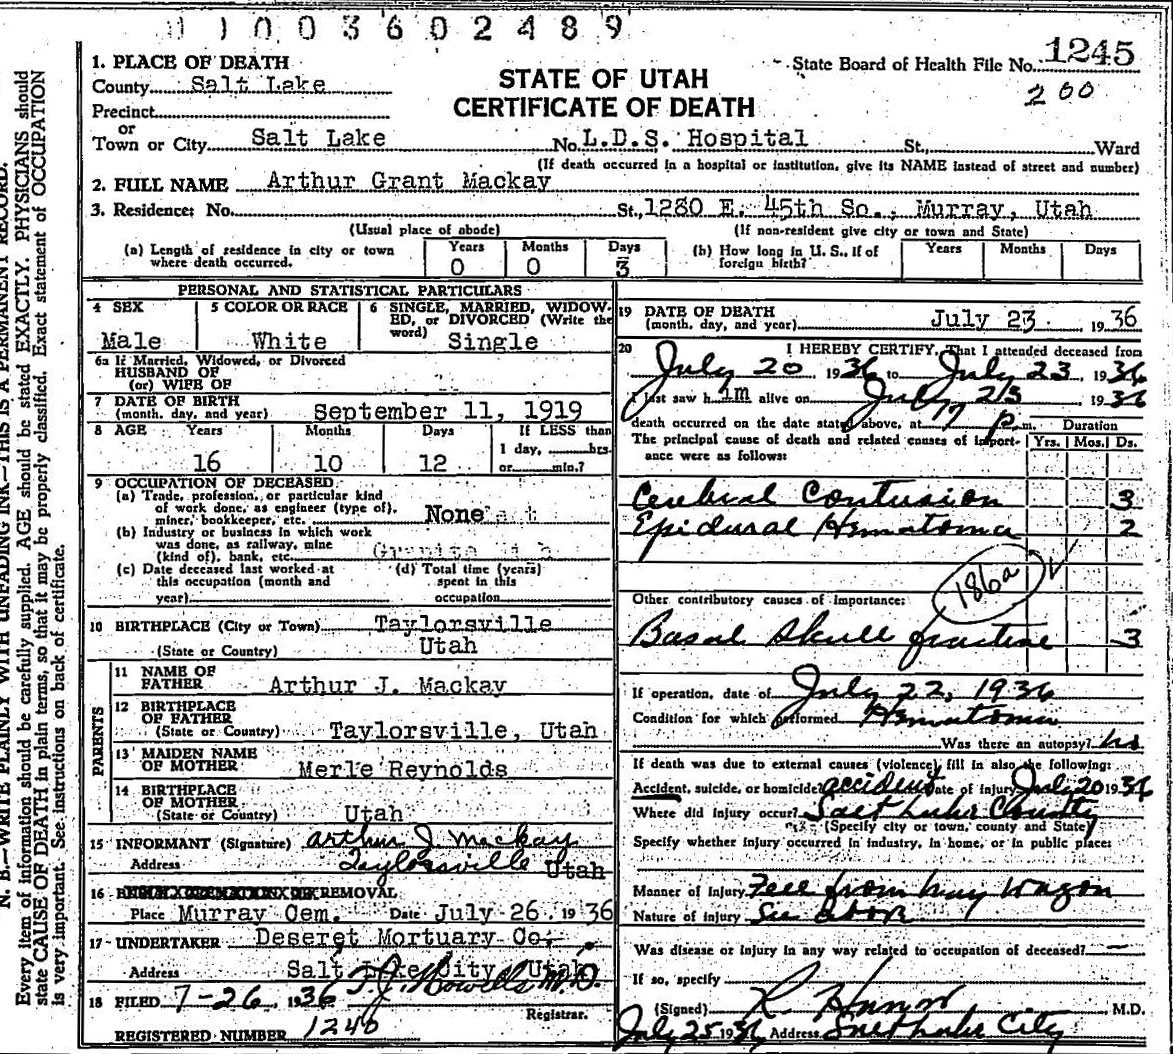 11003602489
1. PLACE OF DEATH
County Salt Lake
Precinct
or
Town or City Salt Lake No. L.D.S. Hospital St., Ward
(If death occurred in a hospital or institution, give its NAME instead of street and number)
STATE OF UTAH
CERTIFICATE OF DEATH
State Board of Health File No. 1245
200
2. FULL NAME Arthur Grant Mackay
3. Residence: No. St., 1280 E. 45th So., Murray, Utah
(Usual place of abode) (If non-resident give city or town and State)
(a) Length of residence in city or town where death occurred. Years 0 Months 0 Days 3
(b) How long in U. S., if of foreign birth? Years Months Days
PERSONAL AND STATISTICAL PARTICULARS
4 SEX Male
5 COLOR OR RACE White
6 SINGLE, MARRIED, WIDOWED, or DIVORCED (Write the word) Single
6a If Married, Widowed, or Divorced
HUSBAND OF
(or) WIFE OF
7 DATE OF BIRTH
(month, day, and year) September 11, 1919
8 AGE Years Months Days If LESS than
1 day, hrs.
or min.?
16 10 12
9 OCCUPATION OF DECEASED
(a) Trade, profession, or particular kind
of work done, as engineer (type of),
miner, bookkeeper, etc. None
(b) Industry or business in which work
was done, as railway, mine
(kind of), bank, etc.
(c) Date deceased last worked at
this occupation (month and
year)
(d) Total time (years)
spent in this
occupation
10 BIRTHPLACE (City or Town) Taylorsville
(State or Country) Utah
PARENTS
11 NAME OF
FATHER Arthur J. Mackay
12 BIRTHPLACE
OF FATHER
(State or Country) Taylorsville, Utah
13 MAIDEN NAME
OF MOTHER Merle Reynolds
14 BIRTHPLACE
OF MOTHER
(State or Country) Utah
15 INFORMANT (Signature) Arthur J. Mackay
Address Taylorsville Utah
16 BURIAL, CREMATION OR REMOVAL
Place Murray Cem. Date July 26 1936
17 UNDERTAKER Deseret Mortuary Co.
Address Salt Lake City, Utah
18 FILED 7-26 1936 T. J. Howells M.D.
Registrar.
REGISTERED NUMBER 1240
19 DATE OF DEATH
(month, day, and year) July 23 1936
20 I HEREBY CERTIFY, That I attended deceased from
July 20 1936 to July 23, 1936
I last saw him alive on July 23 1936
death occurred on the date stated above, at p.m.
The principal cause of death and related causes of importance were as follows:
Duration
Yrs. Mos. Ds.
Cerebral Contusion 3
Epidural Hematoma 2
186a
Other contributory causes of importance:
Basal Skull fracture 3
If operation, date of July 22, 1936
Condition for which performed Hematoma
Was there an autopsy? no
If death was due to external causes (violence) fill in also the following:
Accident, suicide, or homicide? accident Date of injury July 20 1936
Where did injury occur? Salt Lake County
(Specify city or town, county and State)
Specify whether injury occurred in industry, in home, or in public place:
Manner of Injury Fell from hay wagon
Nature of Injury See above
Was disease or injury in any way related to occupation of deceased? —
If so, specify
(Signed) M.D.
July 25 1936 Address Salt Lake City
N. B.—WRITE PLAINLY WITH UNFADING INK—THIS IS A PERMANENT RECORD.
Every item of information should be carefully supplied. AGE should be stated EXACTLY. PHYSICIANS should
state CAUSE OF DEATH in plain terms, so that it may be properly classified. Exact statement of OCCUPATION
is very important. See instructions on back of certificate.